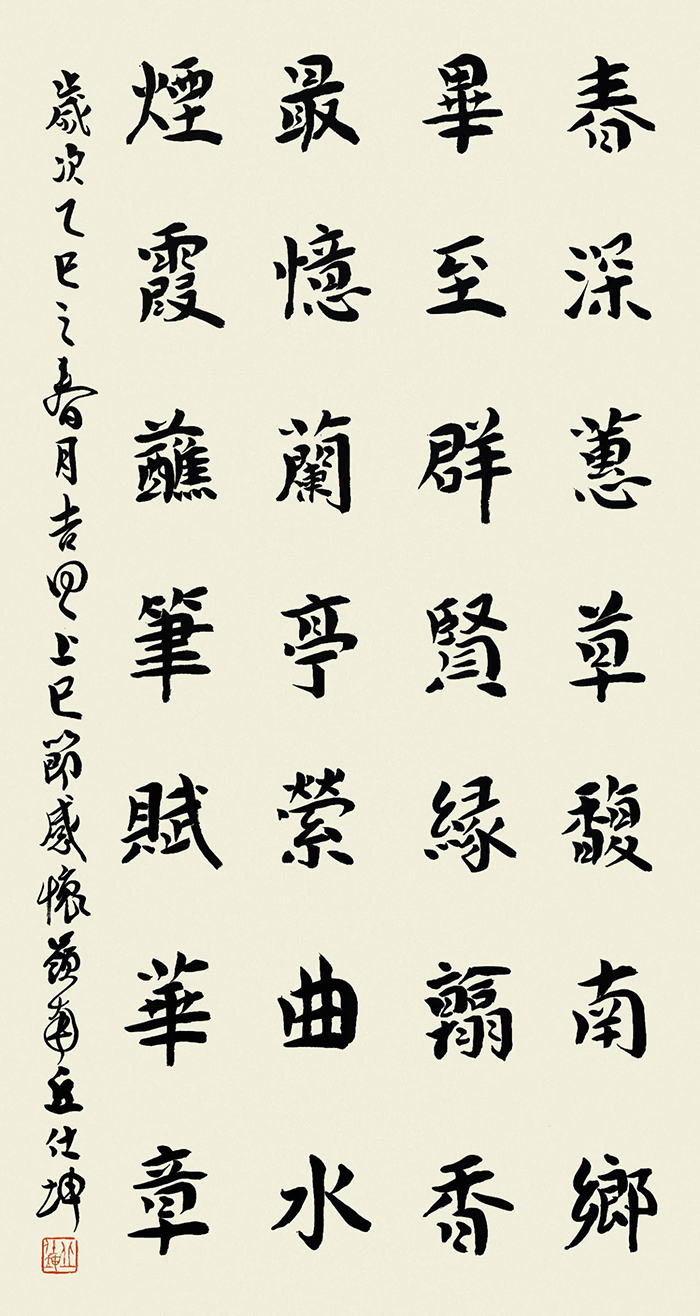 春深蕙草馥南鄉
畢至群賢緣翰香
最憶蘭亭縈曲水
煙霞蘸筆賦華章
歲次乙巳之春月吉旦上巳節感懷嶺南丘仕坤